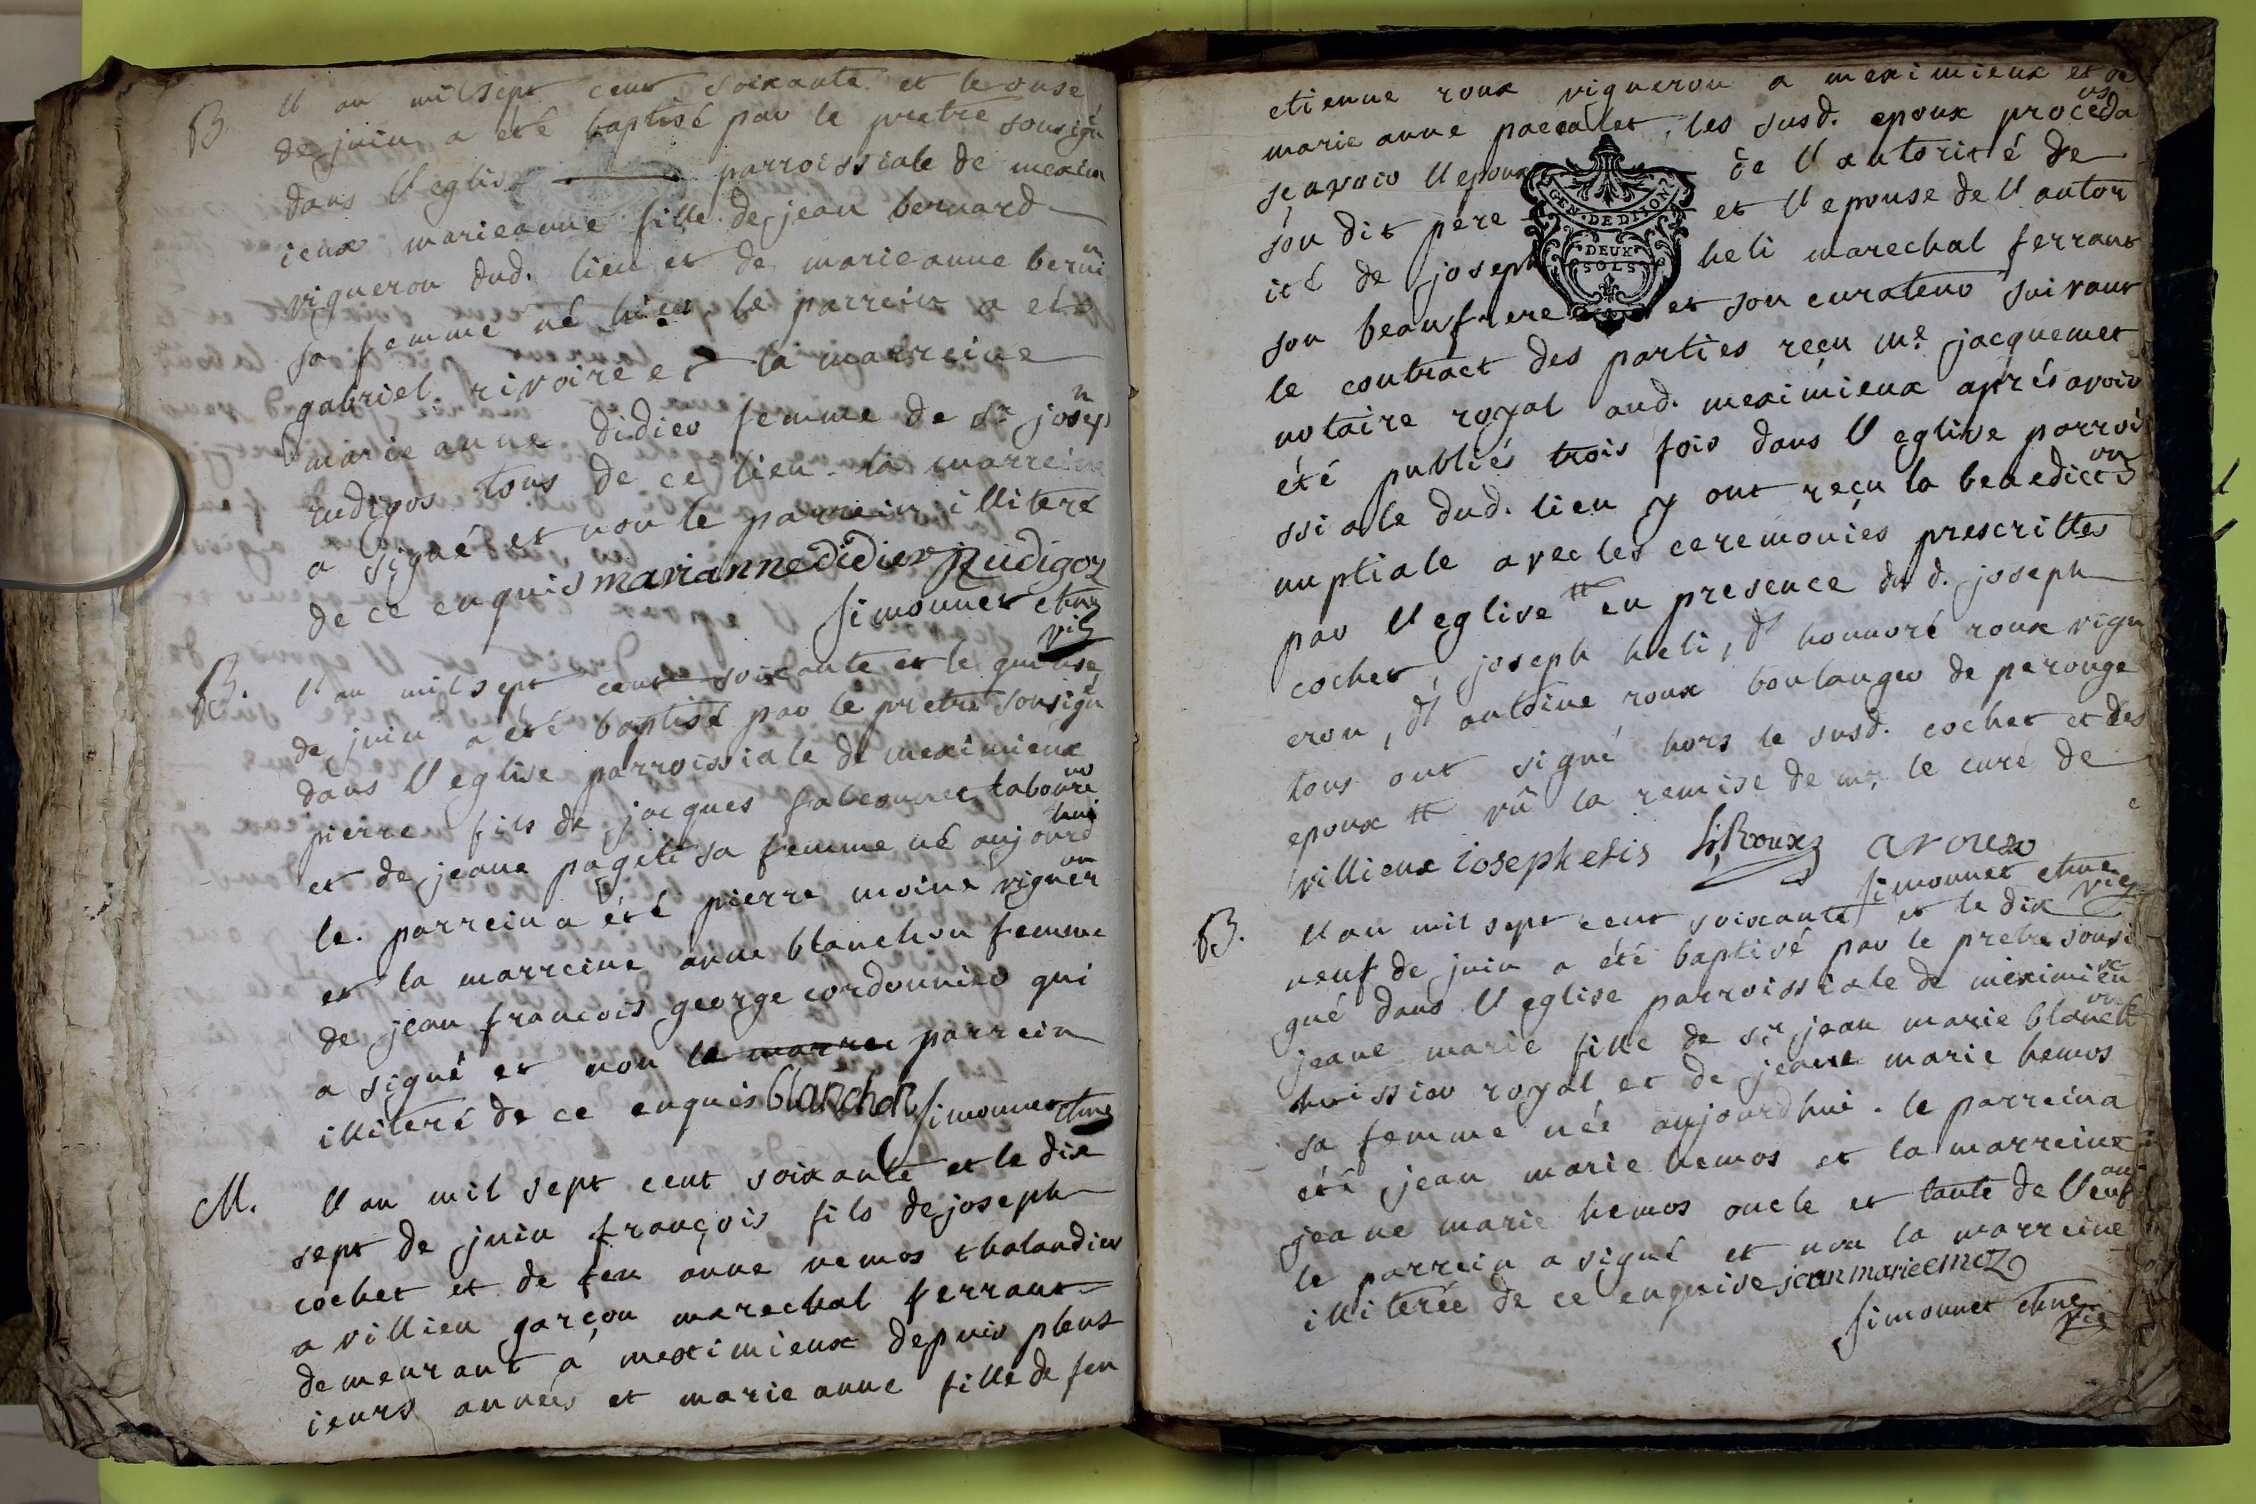 B l'an mil sept cent soixante et le onse
de juin a eté baptisé par le pretre sousigné
dans l'eglise parroissiale de mexim
ieux marieanne fille de jean bernard
vigneron dud. lieu et de marieanne bernin
sa femme né hier le parrein a eté
gabriel rivoire et la marreine
marie anne didier femme de sr joseph
rudigos tous de ce lieu la marreine
a signé et non le parrein illiteré
de ce enquis marianne didier Rudigoz
simonnet chne
vic
B. l'an mil sept cent soixante et le quinse
de juin a eté baptisé par le pretre sousigné
dans l'eglise parroissiale de meximieux
pierre fils de jacques falconnet
et de jeane sa femme né aujourdhui
le parrein a été pierre moine vigneron
et la marreine anne blanchon femme
de jean francois george cordonnier qui
a signé et non la marrei parrein
illiteré de ce enquis blanchon simonnet chne
M. l'an mil sept cent soixante et le dix
sept de juin françois fils de joseph
cochet et de feu anne nemos
a villieu garçon marechal ferrant
demeurant a meximieux depuis plus
ieurs années et marie anne fille de feu
etienne roux vigneron a meximieux et de
marie anne paccalet, les susd. epoux procedans
sçavoir l'epoux de l'autorité de
son dit pere et l'epouse de l'autor
ité de joseph heli marechal ferrant
GEN. DE DIJON
DEUX
SOLS
son beaufrere et son curateur suivant
le contract des parties reçu me jacquemet
notaire royal aud. meximieux aprés avoir
été publiés trois fois dans l'eglise parroi
ssiale dud. lieu y ont reçu la benediction
nuptiale avec les ceremonies prescrittes
par l'eglise # en presence dud. joseph
cochet, joseph heli, d' honnoré roux vign
eron, d' antoine roux boulanger de perouge
tous ont signé hors le susd. cochet et des
epoux # vû la remise de mr le curé de
villieux ioseph elis h Roux a roux
simonnet chne
vic
B. l'an mil sept cent soixante et le dix
neuf de juin a été baptisé par le pretre sousi
gné dans l'eglise parroissiale de meximieux
jeane marie fille de sr jean marie
huissier royal et de jeane marie hemos
sa femme née aujourdhui . le parrein a
été jean marie hemos et la marreine
jeane marie hemos oncle et tante de l'enfant
le parrein a signé et non la marreine
illiterée de ce enquise jean marie emoz
simonnet chne
vic